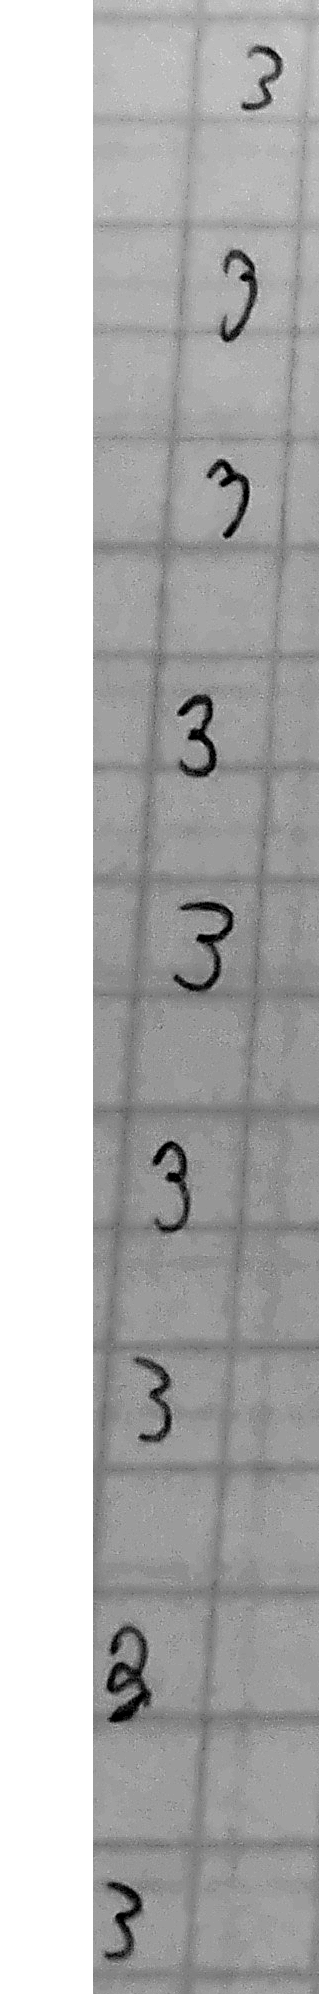 3
3
3
3
3
3
3
2
3